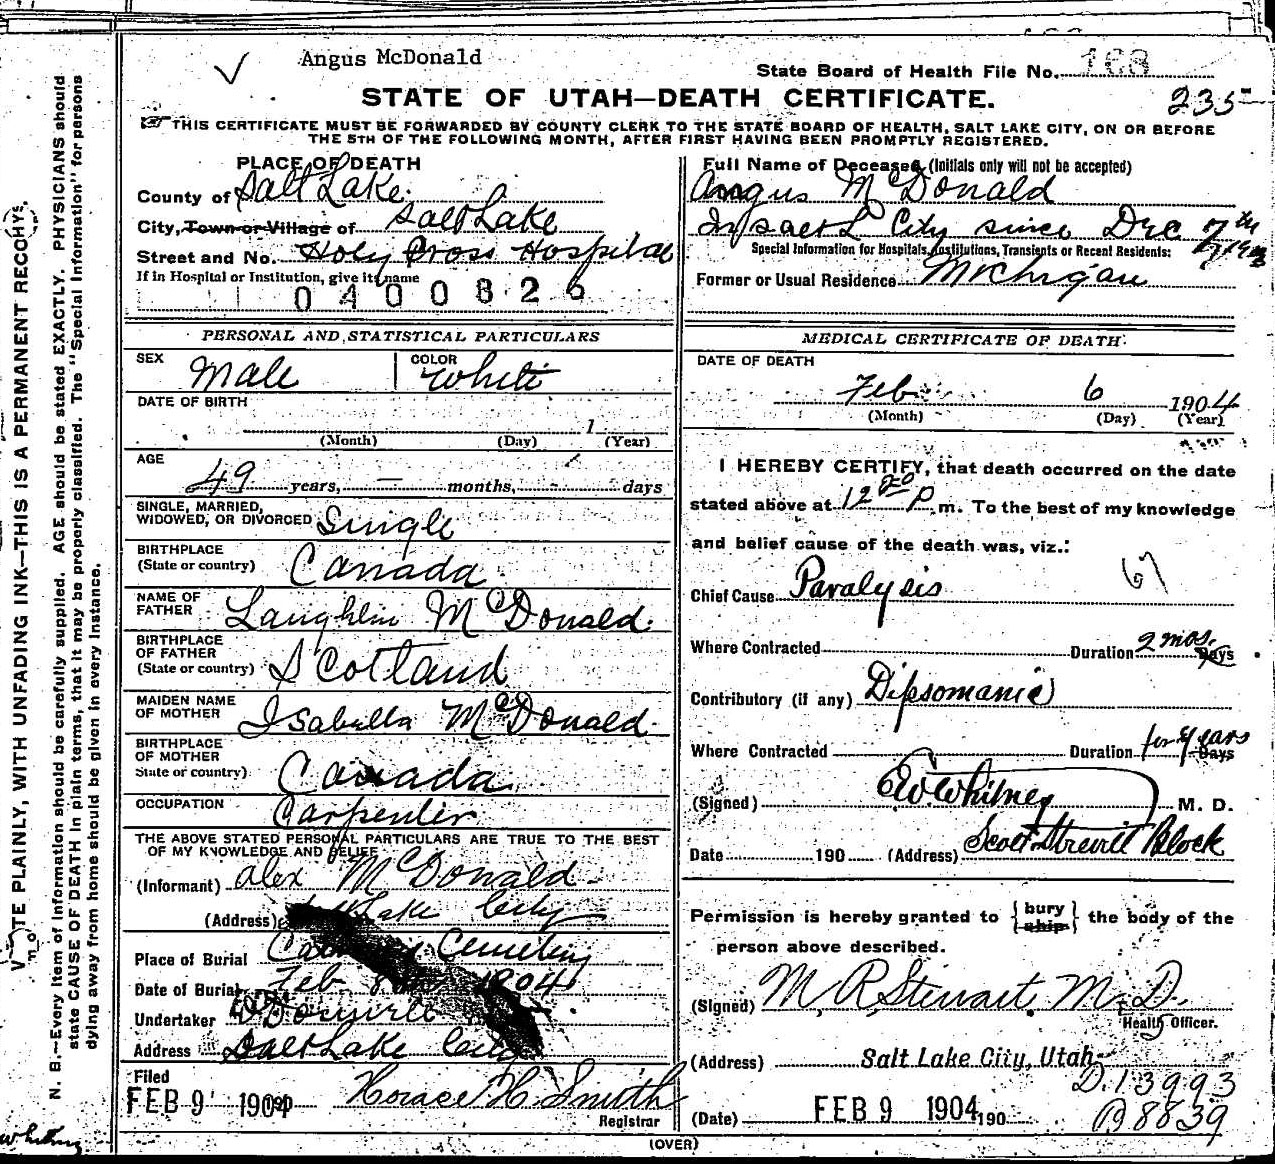 Angus McDonald
State Board of Health File No. 168
STATE OF UTAH—DEATH CERTIFICATE.
235
THIS CERTIFICATE MUST BE FORWARDED BY COUNTY CLERK TO THE STATE BOARD OF HEALTH, SALT LAKE CITY, ON OR BEFORE
THE 5TH OF THE FOLLOWING MONTH, AFTER FIRST HAVING BEEN PROMPTLY REGISTERED.
PLACE OF DEATH
County of Salt Lake
City, Town or Village of Salt Lake
Street and No. Holy Cross Hospital
If in Hospital or Institution, give its name
0400826
Full Name of Deceased (Initials only will not be accepted)
Angus McDonald
In Salt L City since Dec 7th
Special Information for Hospitals, Institutions, Transients or Recent Residents:
Former or Usual Residence Michigan
PERSONAL AND STATISTICAL PARTICULARS
SEX Male COLOR White
DATE OF BIRTH
1
(Month) (Day) (Year)
AGE
49 years, — months, days
SINGLE, MARRIED,
WIDOWED, OR DIVORCED Single
BIRTHPLACE
(State or country) Canada
NAME OF
FATHER Laughlin McDonald
BIRTHPLACE
OF FATHER
(State or country) Scotland
MAIDEN NAME
OF MOTHER Isabella McDonald
BIRTHPLACE
OF MOTHER
State or country) Canada
OCCUPATION Carpenter
THE ABOVE STATED PERSONAL PARTICULARS ARE TRUE TO THE BEST
OF MY KNOWLEDGE AND BELIEF
(Informant) Alex McDonald
(Address) Lake City
Place of Burial Cemetery
Date of Burial Feb 1904
Undertaker
Address Salt Lake City
Filed
FEB 9 1904 Horace H. Smith
Registrar
MEDICAL CERTIFICATE OF DEATH.
DATE OF DEATH
Feb 6 1904
(Month) (Day) (Year)
I HEREBY CERTIFY, that death occurred on the date
stated above at 12 20 P. m. To the best of my knowledge
and belief cause of the death was, viz.:
Chief Cause Paralysis
Where Contracted Duration 2 mos. Days
Contributory (if any) Dipsomania
Where Contracted Duration for years Days
(Signed) Whitney M. D.
Date 190 (Address) Scott Block
Permission is hereby granted to {bury ship} the body of the
person above described.
(Signed) M. R. Stewart, M. D.
Health Officer.
(Address) Salt Lake City, Utah.
D. 13993
(Date) FEB 9 1904 190
B 8839
(OVER)
WRITE PLAINLY, WITH UNFADING INK—THIS IS A PERMANENT RECORD.
N. B.—Every item of information should be carefully supplied. AGE should be stated EXACTLY. PHYSICIANS should
state CAUSE OF DEATH in plain terms, that it may be properly classified. The "Special Information" for persons
dying away from home should be given in every instance.
Whitney